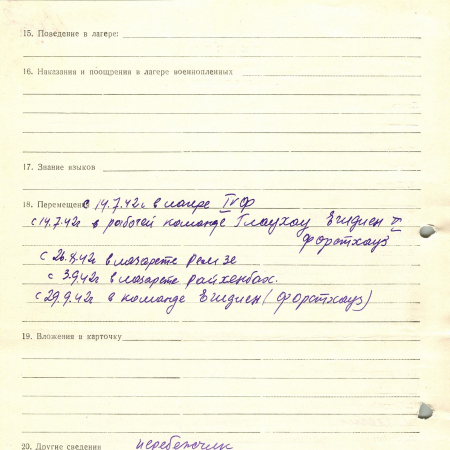 15. Поведение в лагере:
16. Наказания и поощрения в лагере военнопленных
17. Знание языков
18. Перемещен с 14.7.42г в лагре IVф
с 14.7.42г в рабочей команде Глаухау Егидиен II
Форстхауз
с 26.8.42г в лазарете Ремзе
с 3.9.42г в лазарете Райхенбах.
с 29.9.42г в команде Егидиен (Форстхауз)
19. Вложения в карточку
20. Другие сведения перебежчик